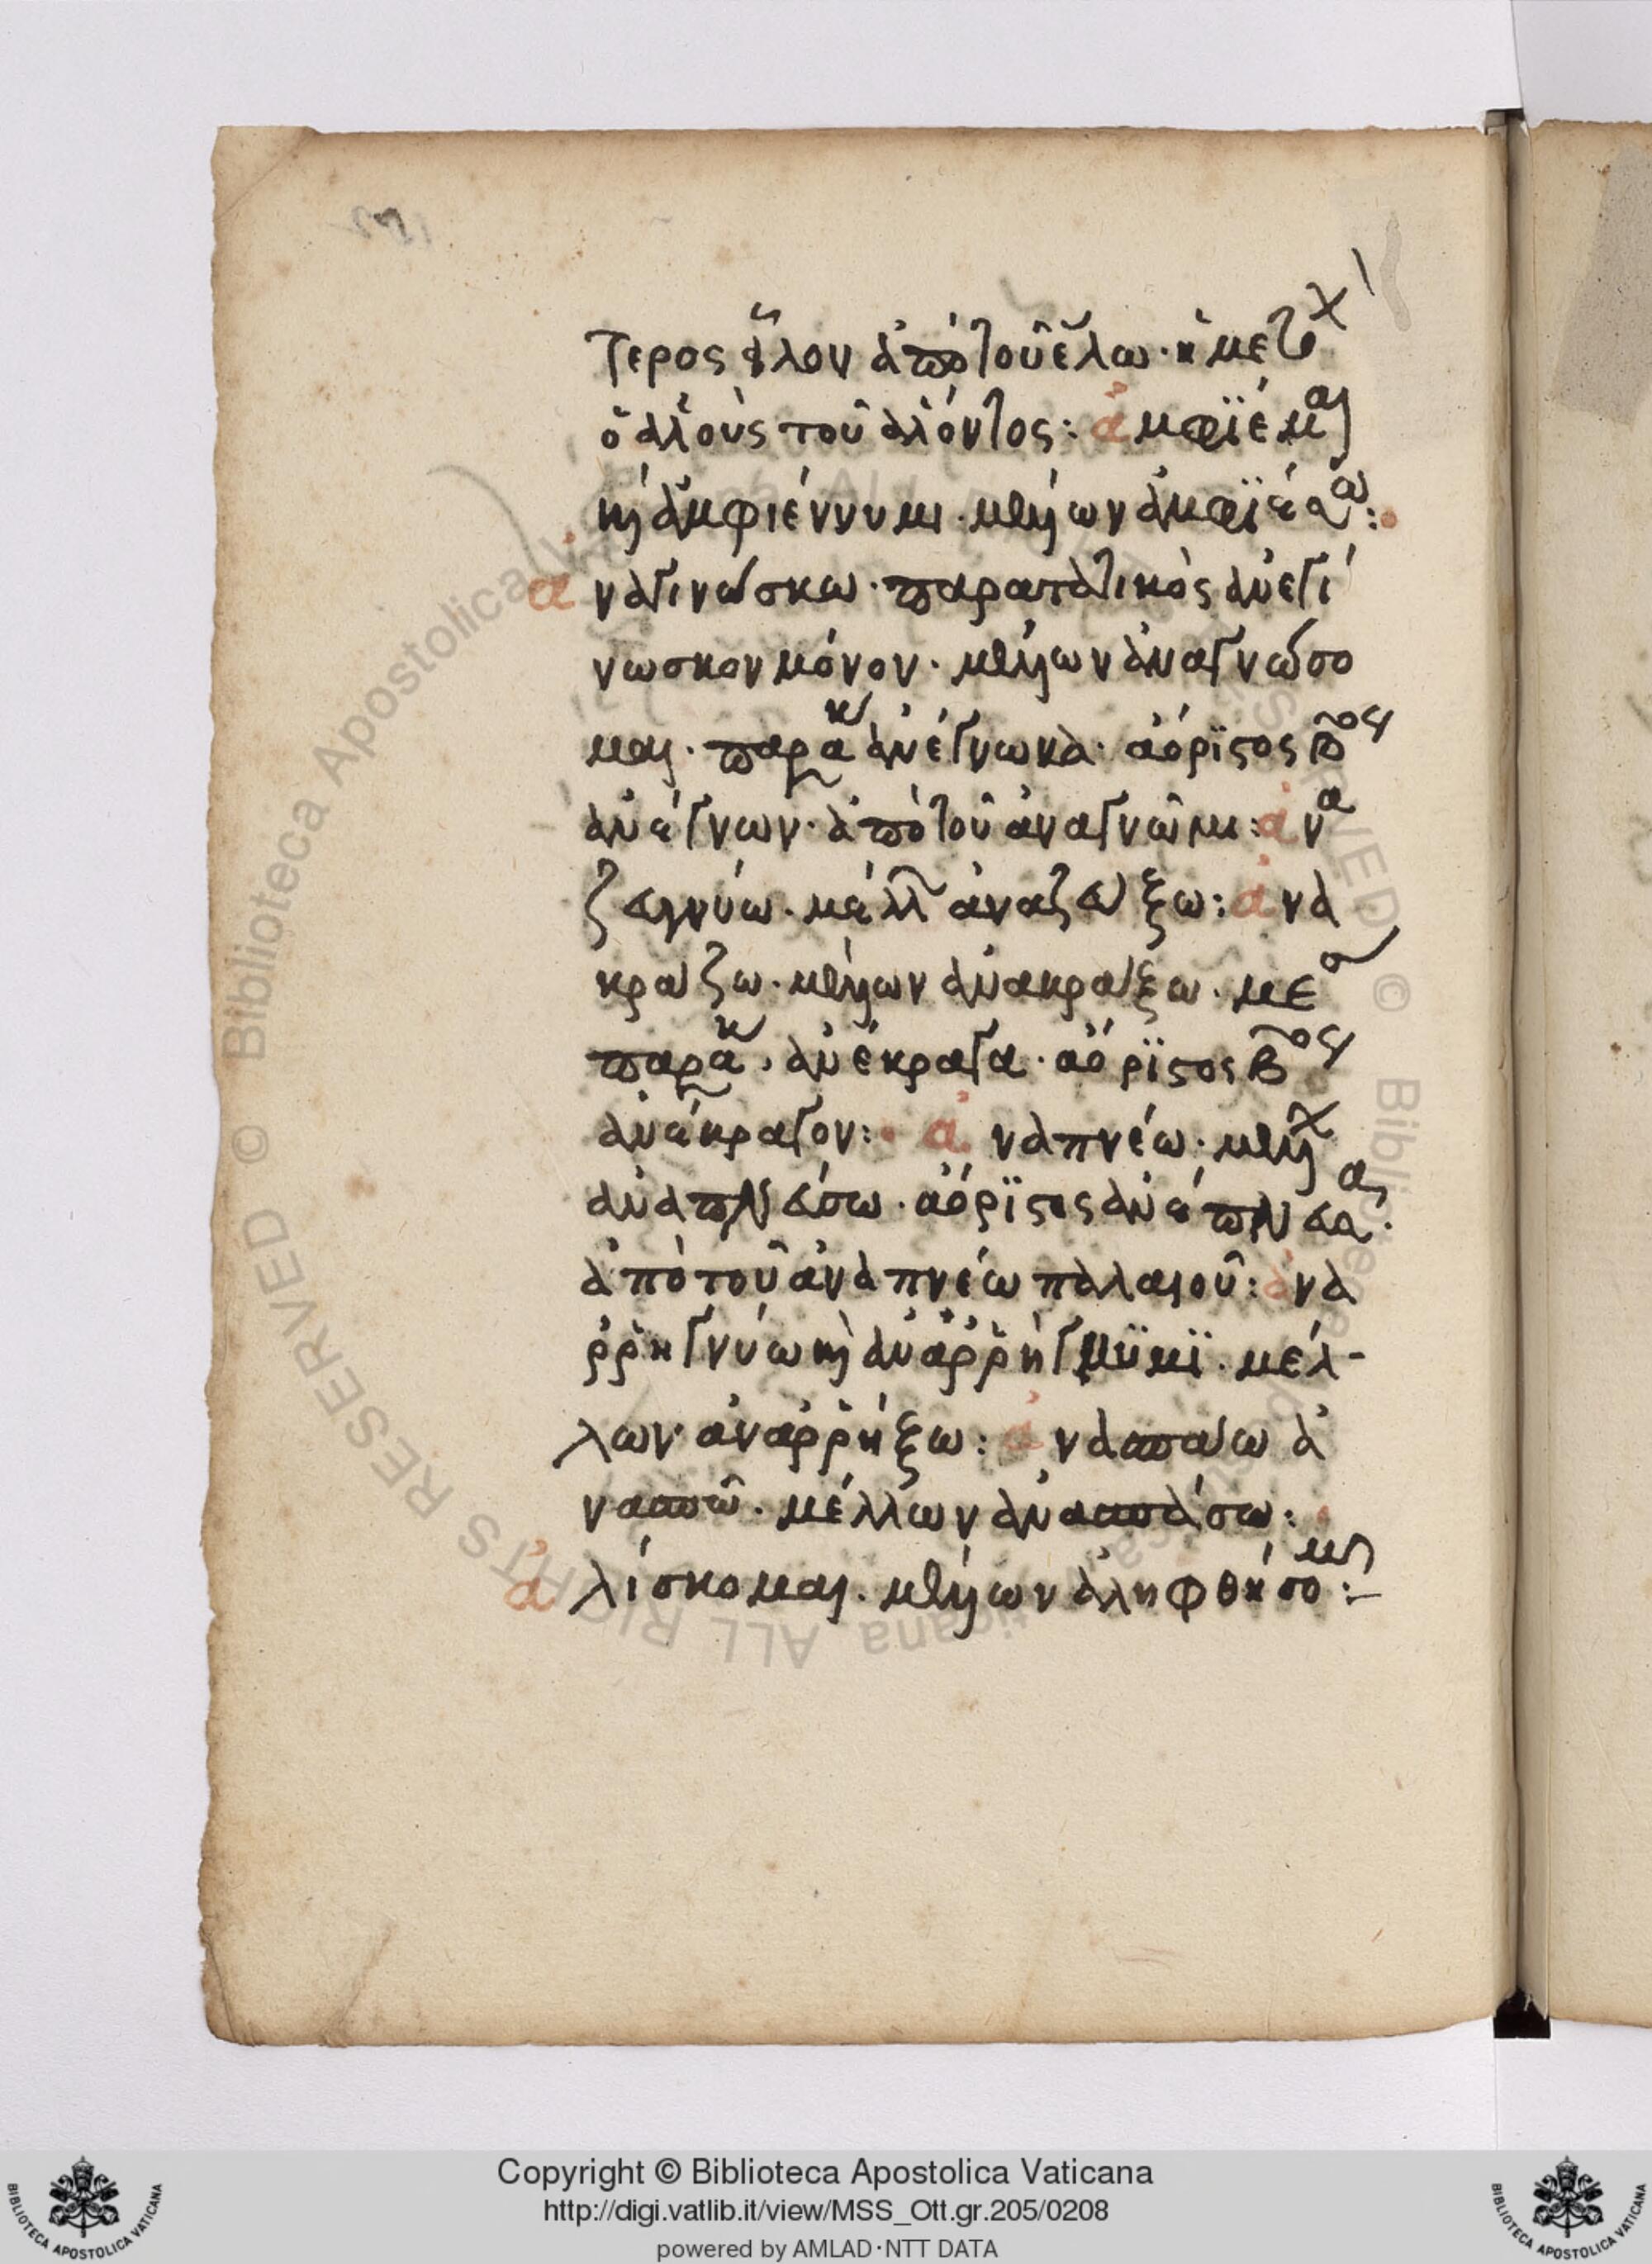 τερος εἷλον ἀπὸ τοῦ ἕλω· ἡ μετοχ
ὁ ἁλοὺς τοῦ ἁλόντος: ἀμφϊέμαι
καὶ ἀμφιέννυμι· μέλλων ἀμφϊέσω:
ἀναγινώσκω· παρατατικὸς ἀνεγί
νωσκον μόνον· μέλλων ἀναγνώσο
μαι· παρακ ἀνέγνωκα· ἀόρϊστος βος
ἀνέγνων· ἀπὸ τοῦ ἀναγνῶμι: ἀνα
ζευγνύω· μέλλ ἀναζεύξω: ἀνα
κράζω· μέλλων ἀνακράξω· μεσ
παρακ· ἀνέκραγα· ἀόρϊστος βος
ἀνέκραγον: ἀναπνέω· μέλλ
ἀναπνεύσω· ἀόρϊστος ἀνέπνευσα·
ἀπὸ τοῦ ἀναπνέω παλαιοῦ: ἀνα
ῤῥηγνύω καὶ ἀναῤῥήγνϋμϊ· μέλ-
λων ἀναῤῥήξω: ἀνασπάω ἀ
νασπῶ· μέλλων ἀνασπάσω:
ἁλίσκομαι· μέλλων ἁληφθήσομαι:-
Copyright © Biblioteca Apostolica Vaticana
http://digi.vatlib.it/view/MSS_Ott.gr.205/0208
powered by AMLAD·NTT DATA
BIBLIOTECA APOSTOLICA VATICANA
BIBLIOTECA APOSTOLICA VATICANA